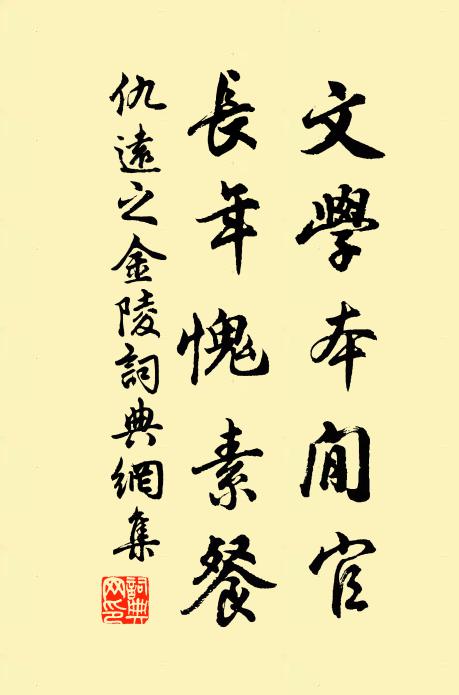 文學本閒官
長年愧素餐
仇遠之金陵詞典網集
詞典網印